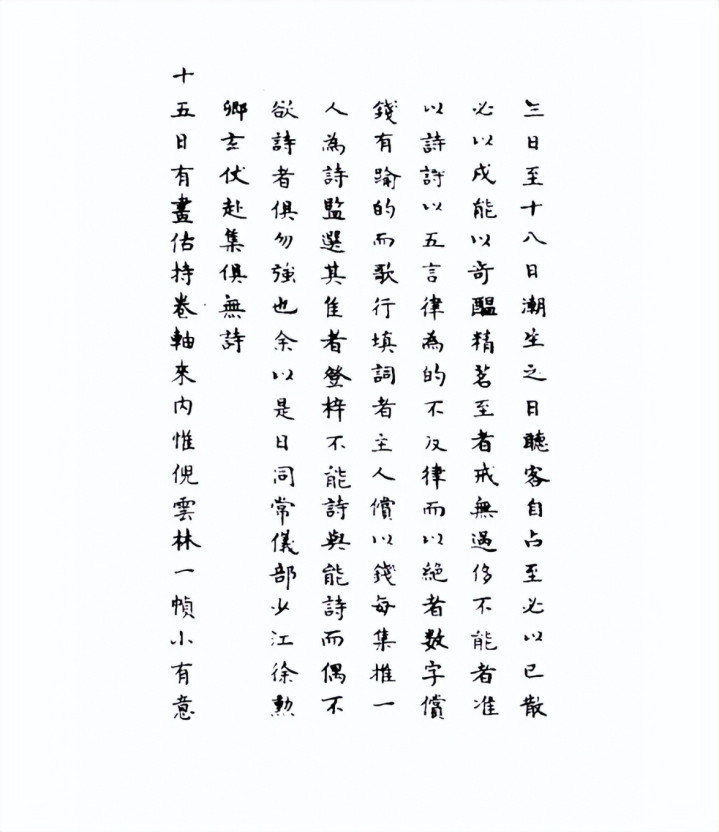 三日至十八日潮生之日聽客自占至必以巳散
必以戌能以奇醞精茗至者戒無過侈不能者准
以詩詩以五言律為的不及律而以絕者数字償
錢有踰的而歌行填詞者主人償以錢每集推一
人為詩監選其隹者登梓不能詩與能詩而偶不
欲詩者俱勿強也余以是日同常儀部少江徐勲
卿玄伏赴集俱無詩
十五日有畫估持卷軸來內惟倪雲林一幀小有意